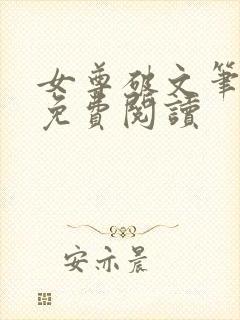 女尊破文筆
免費閱讀
安亦晨